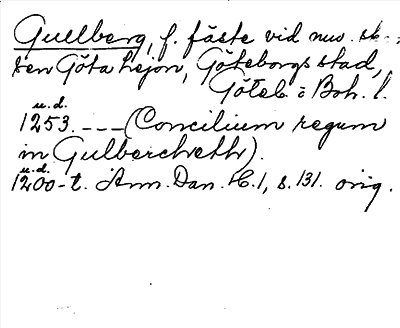 Gullberg, f. fäste vid nuv. sk-
sen Göta Lejon, Göteborgs stad,
Göteb. o Boh. l.
u. d.
1253. --- (Concilium regum
in Gulberchheth).
u. d.
1200-t. Ann. Dan. H. 1, s. 131. orig.